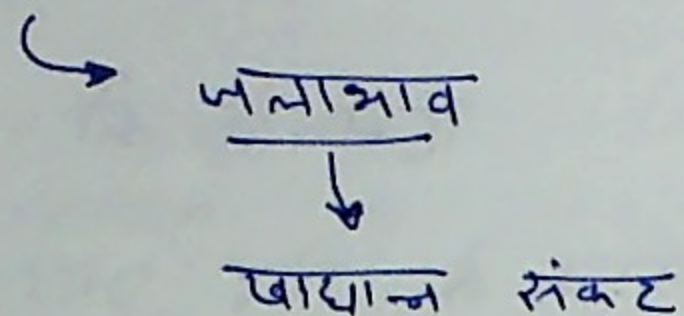 जलाभाव
खाद्यान्न संकट